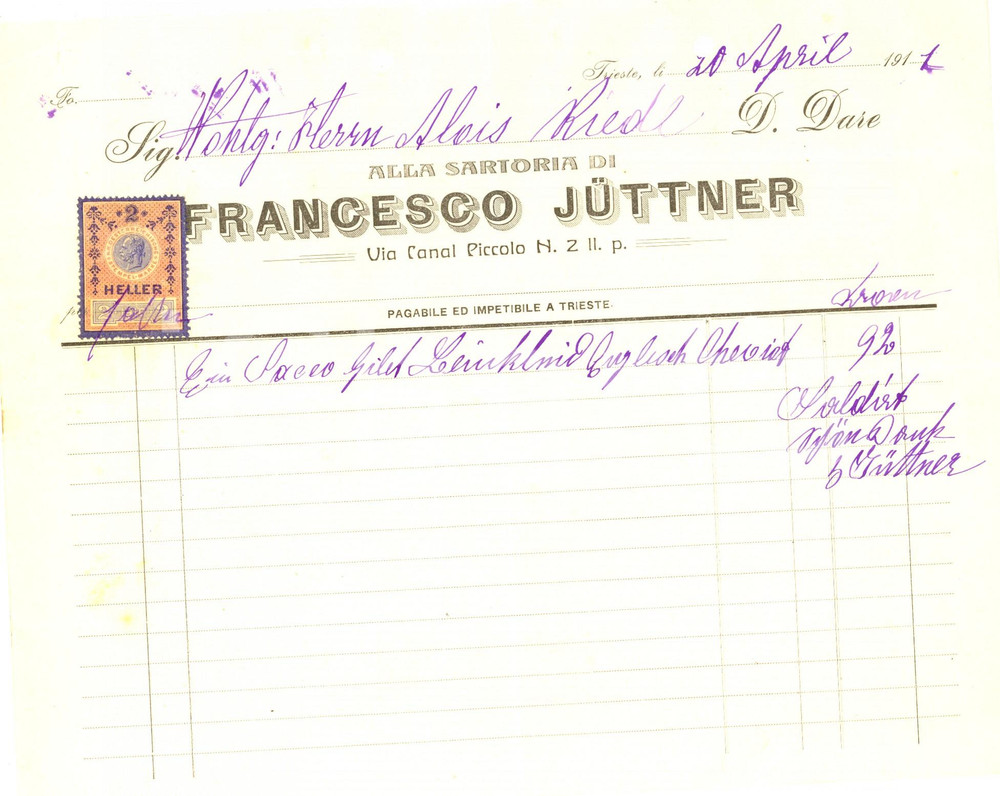 Trieste, li 20 April 1911
Fo.
Sig. Wohlg: Herrn Alois Riedl D. Dare
ALLA SARTORIA DI
FRANCESCO JÜTTNER
Via Canal Piccolo N. 2 II. p.
2
HELLER
PAGABILE ED IMPETIBILE A TRIESTE.
Kronen
Ein Sacco Gilet Beinkleid Englisch Cheviot 92
Saldirt
schön Dank
Jüttner